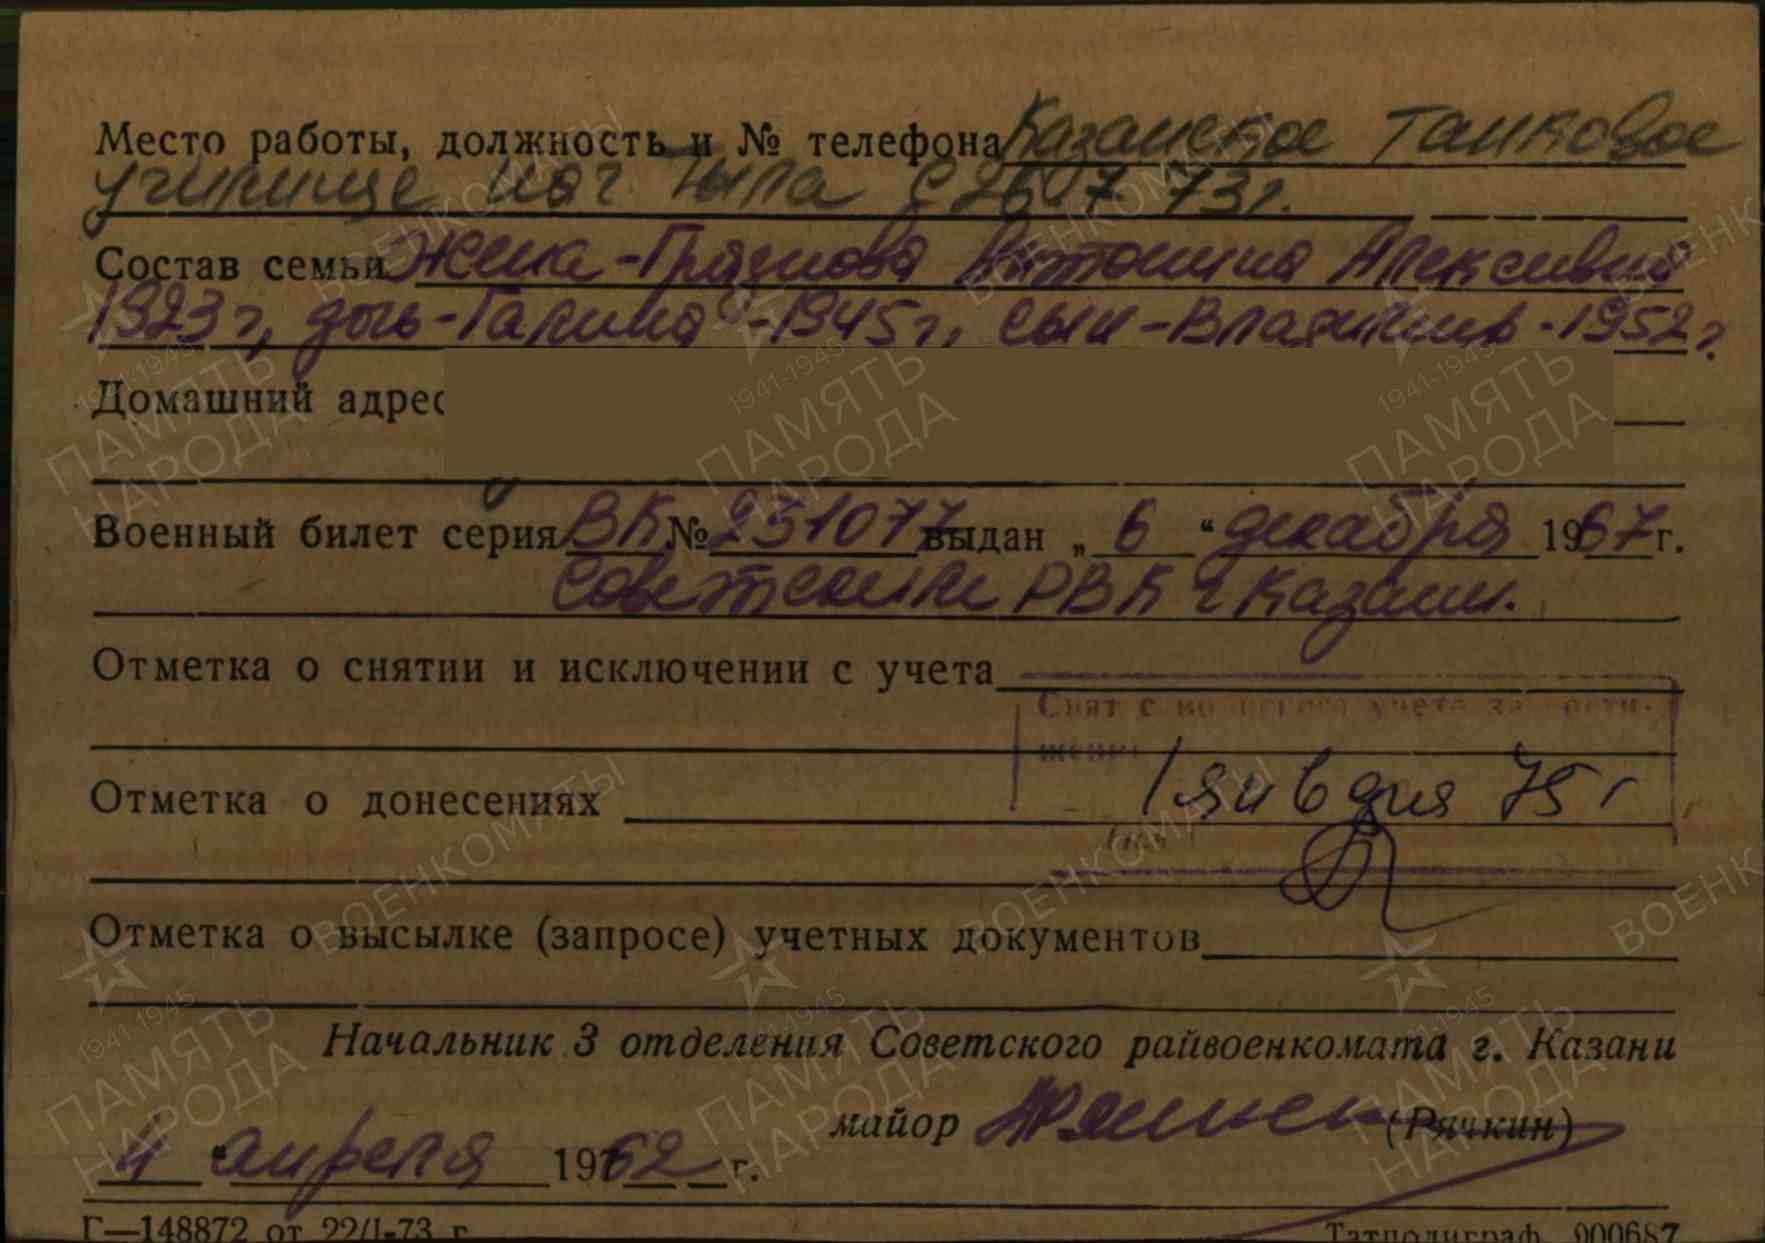 Место работы, должность и № телефона Казанское танковое
училище нач тыла с 26.7.73г.
Состав семьи Жена-Грязнова Антонина Алексеевна
1923 г, дочь-Галина-1945г, сын-Владимир-1952г.
Домашний адрес
Военный билет серия ВК № 231077 выдан „ 6 “ декабря 1967г.
Советским РВК г Казани.
Отметка о снятии и исключении с учета
Снят с учета за
Отметка о донесениях
1 января 75 г
Отметка о высылке (запросе) учетных документов
Начальник 3 отделения Советского райвоенкомата г. Казани
майор (Рячкин)
апреля 19 62 г.
Г—148872 от 22/I-73 г. Татполиграф 000687
ВОЕНКОМАТЫ
1941-1945
ПАМЯТЬ
НАРОДА